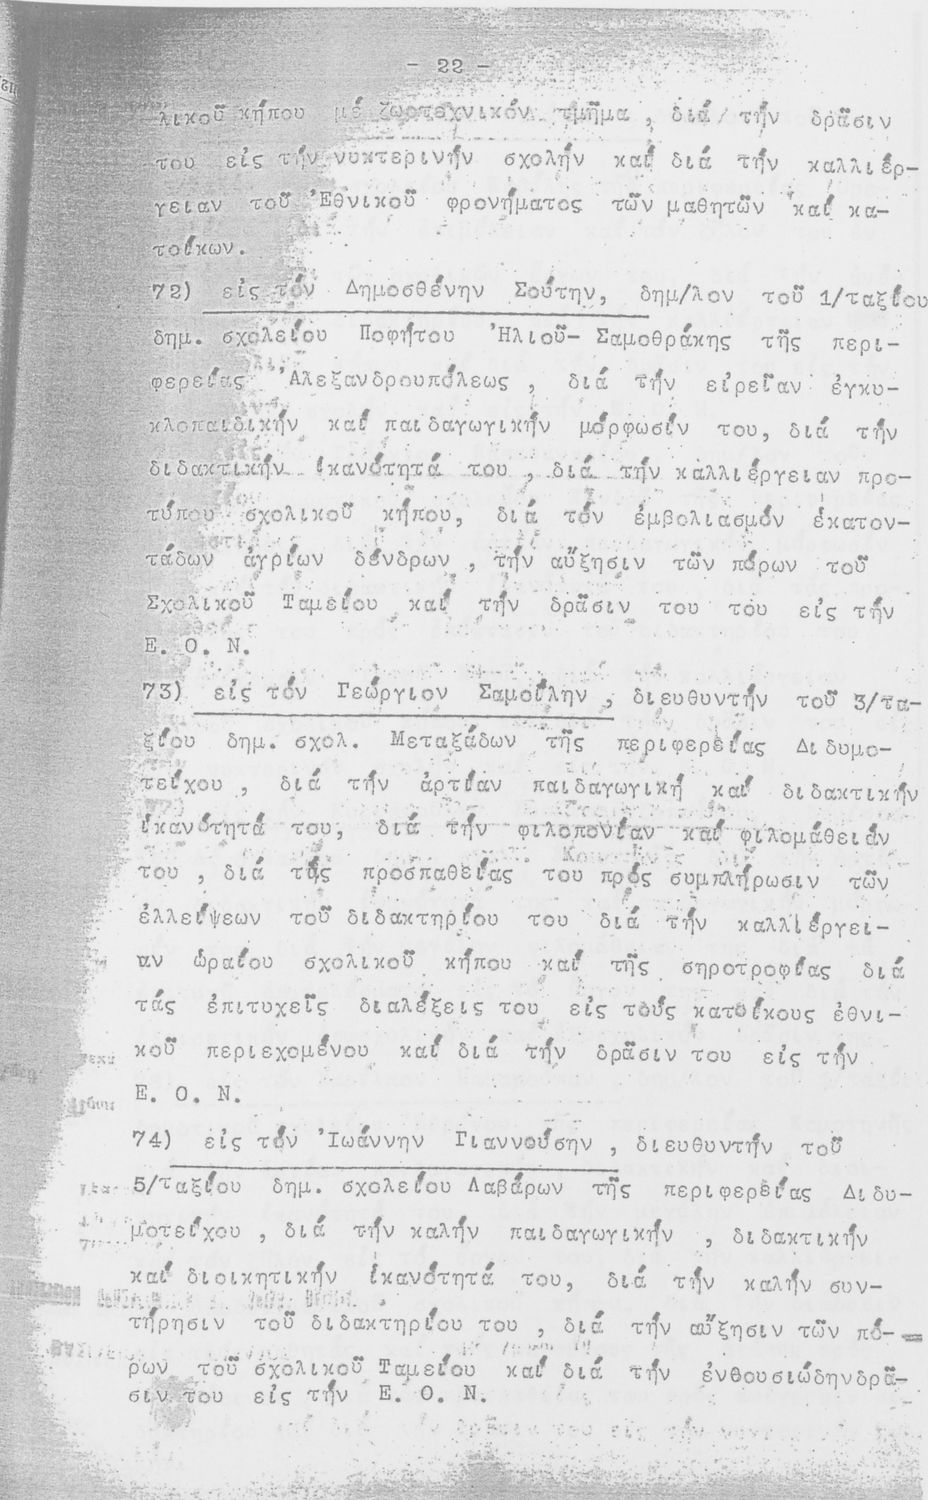 - 22 -
λικοῦ κήπου μέ ζωοτεχνικόν τμῆμα , διά τήν δρᾶσιν
του εἰς τήν νυκτερινήν σχολήν καί διά τήν καλλιέρ-
γειαν τοῦ Ἐθνικοῦ φρονήματος τῶν μαθητῶν καί κα-
τοίκων.
72) εἰς τόν Δημοσθένην Σούτην, δημ/λον τοῦ 1/ταξίου
δημ. σχολείου Ποφήτου Ἠλιοῦ- Σαμοθράκης τῆς περι-
φερείας Ἀλεξανδρουπόλεως , διά τήν εἰρεῖαν ἐγκυ-
κλοπαιδικήν καί παιδαγωγικήν μόρφωσίν του, διά τήν
διδακτικήν ἱκανότητά του , διά τήν καλλιέργειαν προ-
τύπου σχολικοῦ κήπου, διά τόν ἐμβολιασμόν ἑκατον-
τάδων ἀγρίων δένδρων , τήν αὔξησιν τῶν πόρων τοῦ
Σχολικοῦ Ταμείου καί τήν δρᾶσιν του τόυ εἰς τήν
Ε. Ο. Ν.
73) εἰς τόν Γεώργιον Σαμοΐλην , διευθυντήν τοῦ 3/τα-
ξίου δημ. σχολ. Μεταξάδων τῆς περιφερείας Διδυμο-
τείχου , διά τήν ἀρτίαν παιδαγωγική καί διδακτικήν
ἱκανότητά του, διά τήν φιλοπονίαν καί φιλομάθειάν
του , διά τάς προσπαθείας του πρός συμπλήρωσιν τῶν
ἐλλείψεων τοῦ διδακτηρίου του διά τήν καλλιέργει-
αν ὡραίου σχολικοῦ κήπου καί τῆς σηροτροφίας διά
τάς ἐπιτυχεῖς διαλέξεις του εἰς τούς κατοίκους ἐθνι-
κοῦ περιεχομένου καί διά τήν δρᾶσιν του εἰς τήν
Ε. Ο. Ν.
74) εἰς τόν Ἰωάννην Γιαννούσην , διευθυντήν τοῦ
5/ταξίου δημ. σχολείου Λαβάρων τῆς περιφερείας Διδυ-
μοτείχου , διά τήν καλήν παιδαγωγικήν , διδακτικήν
καί διοικητικήν ἱκανότητά του, διά τήν καλήν συν-
τήρησιν τοῦ διδακτηρίου του , διά τήν αὔξησιν τῶν πό-
ρων τοῦ σχολικοῦ Ταμείου καί διά τήν ἐνθουσιώδηνδρᾶ-
σιν του εἰς τήν Ε. Ο. Ν.